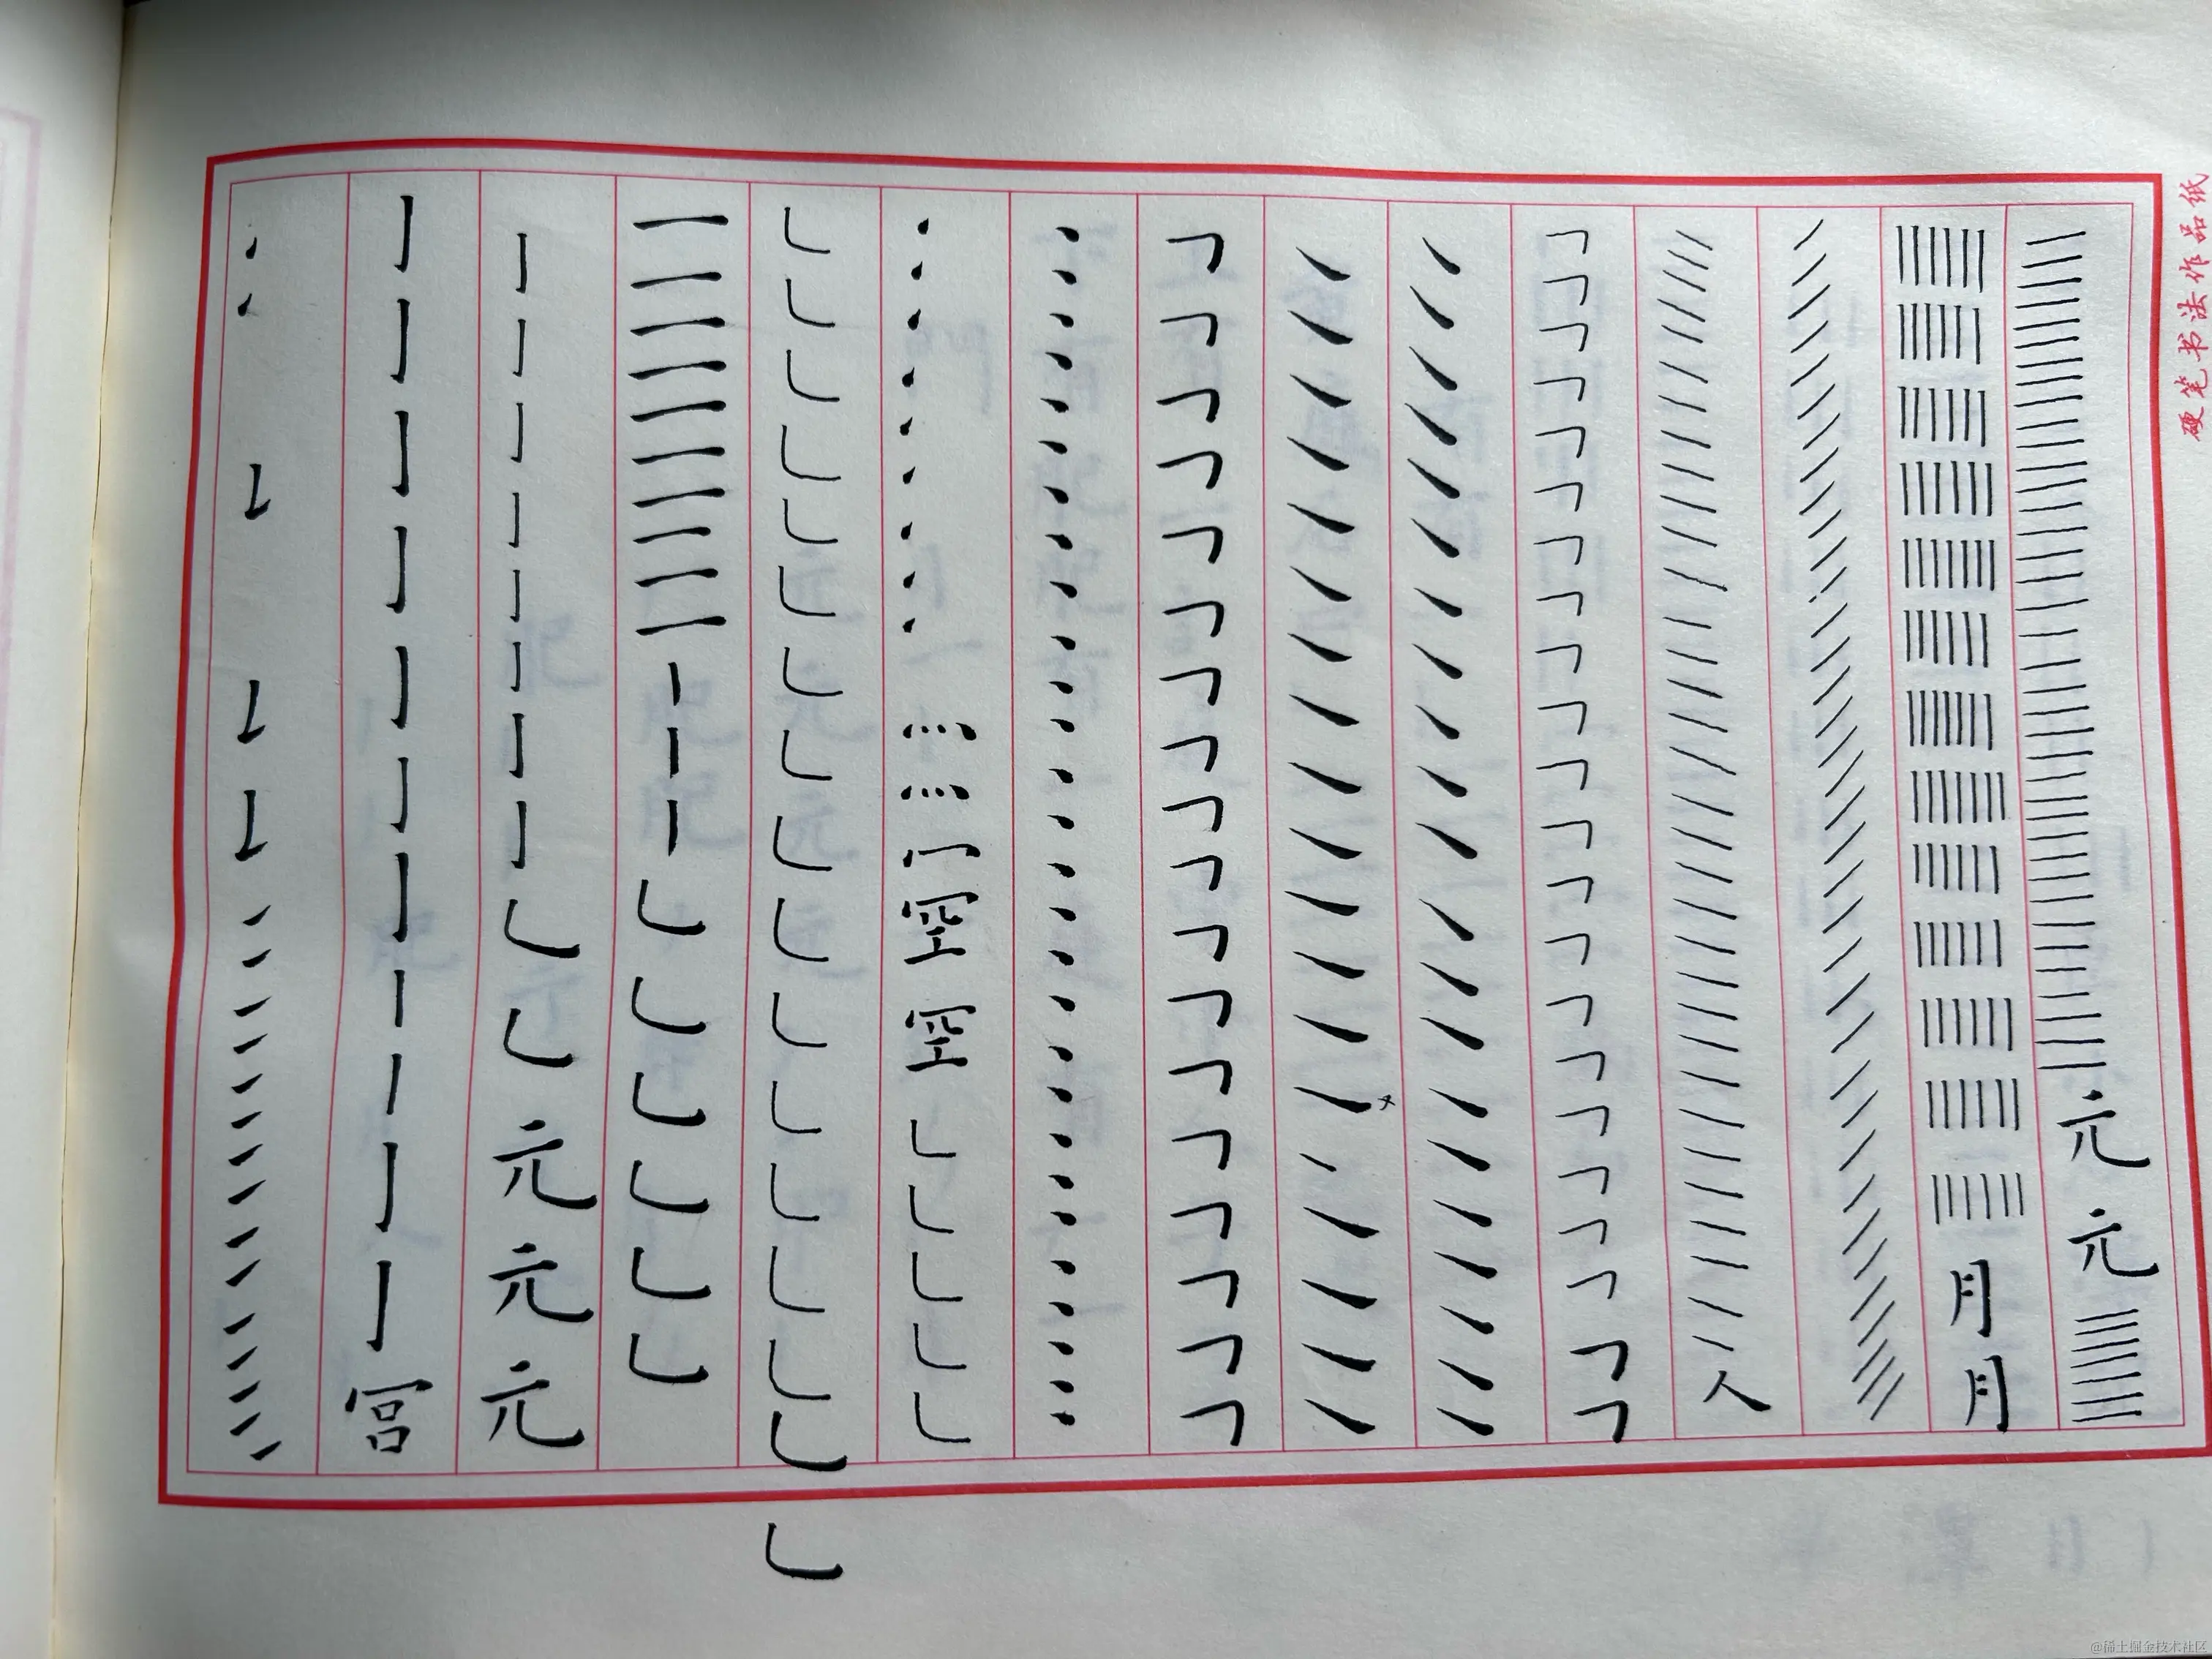 硬笔书法作品纸
元元
月月
人
空空
元元元
宫
@稀土掘金技术社区